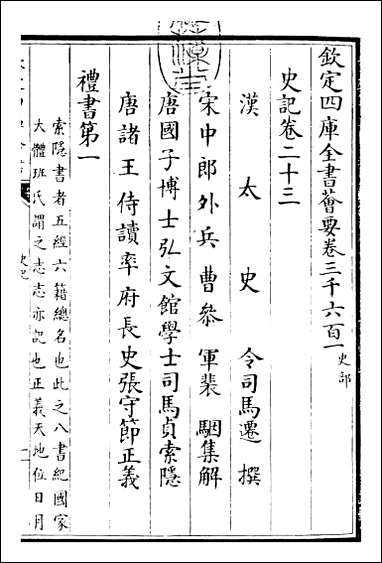 欽定四庫全書薈要卷三千六百一史部
史記卷二十三
漢太史令司馬遷撰
宋中郎外兵曹叅軍裴駰集解
唐國子博士弘文館學士司馬貞索隱
唐諸王侍讀率府長史張守節正義
禮書第一
索隱書者五經六籍總名也此之八書紀國家
大體班氏謂之志志亦記也正義天地位日月